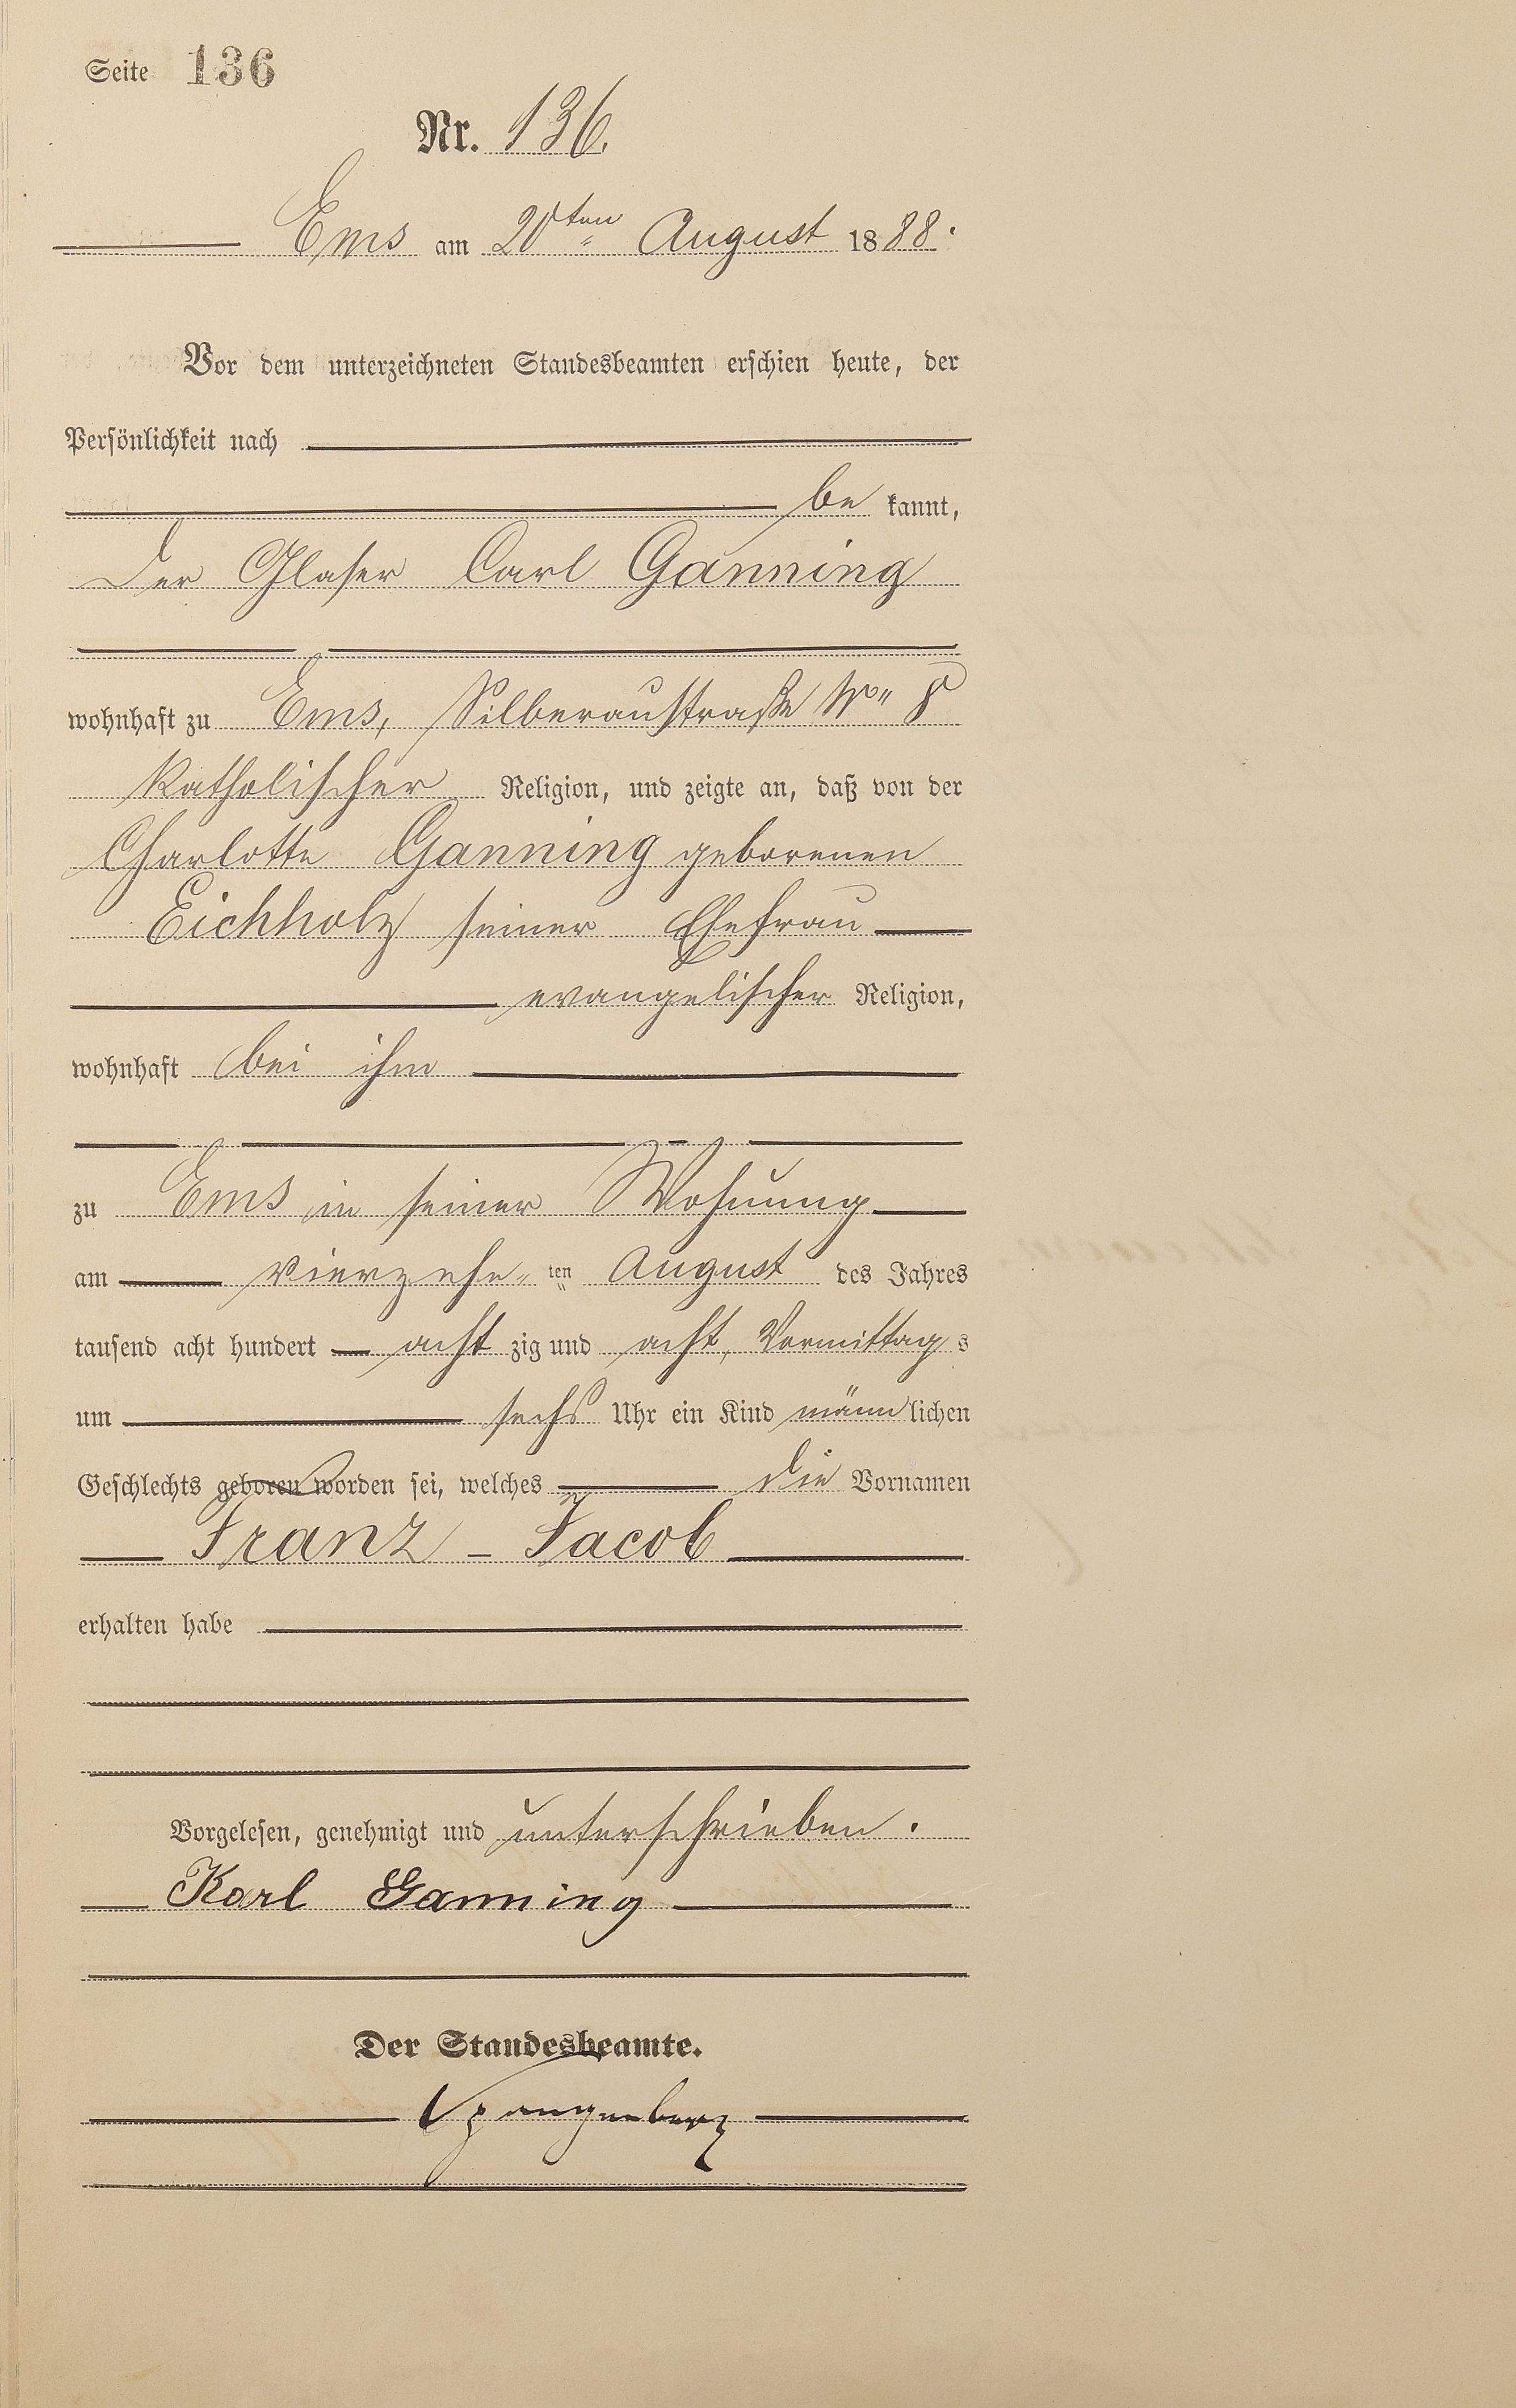 Seite 136
Nr. 136.
Ems am 20ten August 1888.
Vor dem unterzeichneten Standesbeamten erschien heute, der
Persönlichkeit nach
be kannt,
der Glaser Carl Ganning
wohnhaft zu Ems, Silberaustraße No 8
katholischer Religion, und zeigte an, daß von der
Charlotte Ganning geborenen
Eichholz seiner Ehefrau
evangelischer Religion,
wohnhaft bei ihm
zu Ems in seiner Wohnung
am vierzehn ten August des Jahres
tausend acht hundert acht zig und acht, Vormittag s
um sechs Uhr ein Kind männ lichen
Geschlechts geboren worden sei, welches die Vornamen
Franz - Jacob
erhalten habe
Vorgelesen, genehmigt und unterschrieben.
Karl Ganning
Der Standesbeamte.
Spangenberg